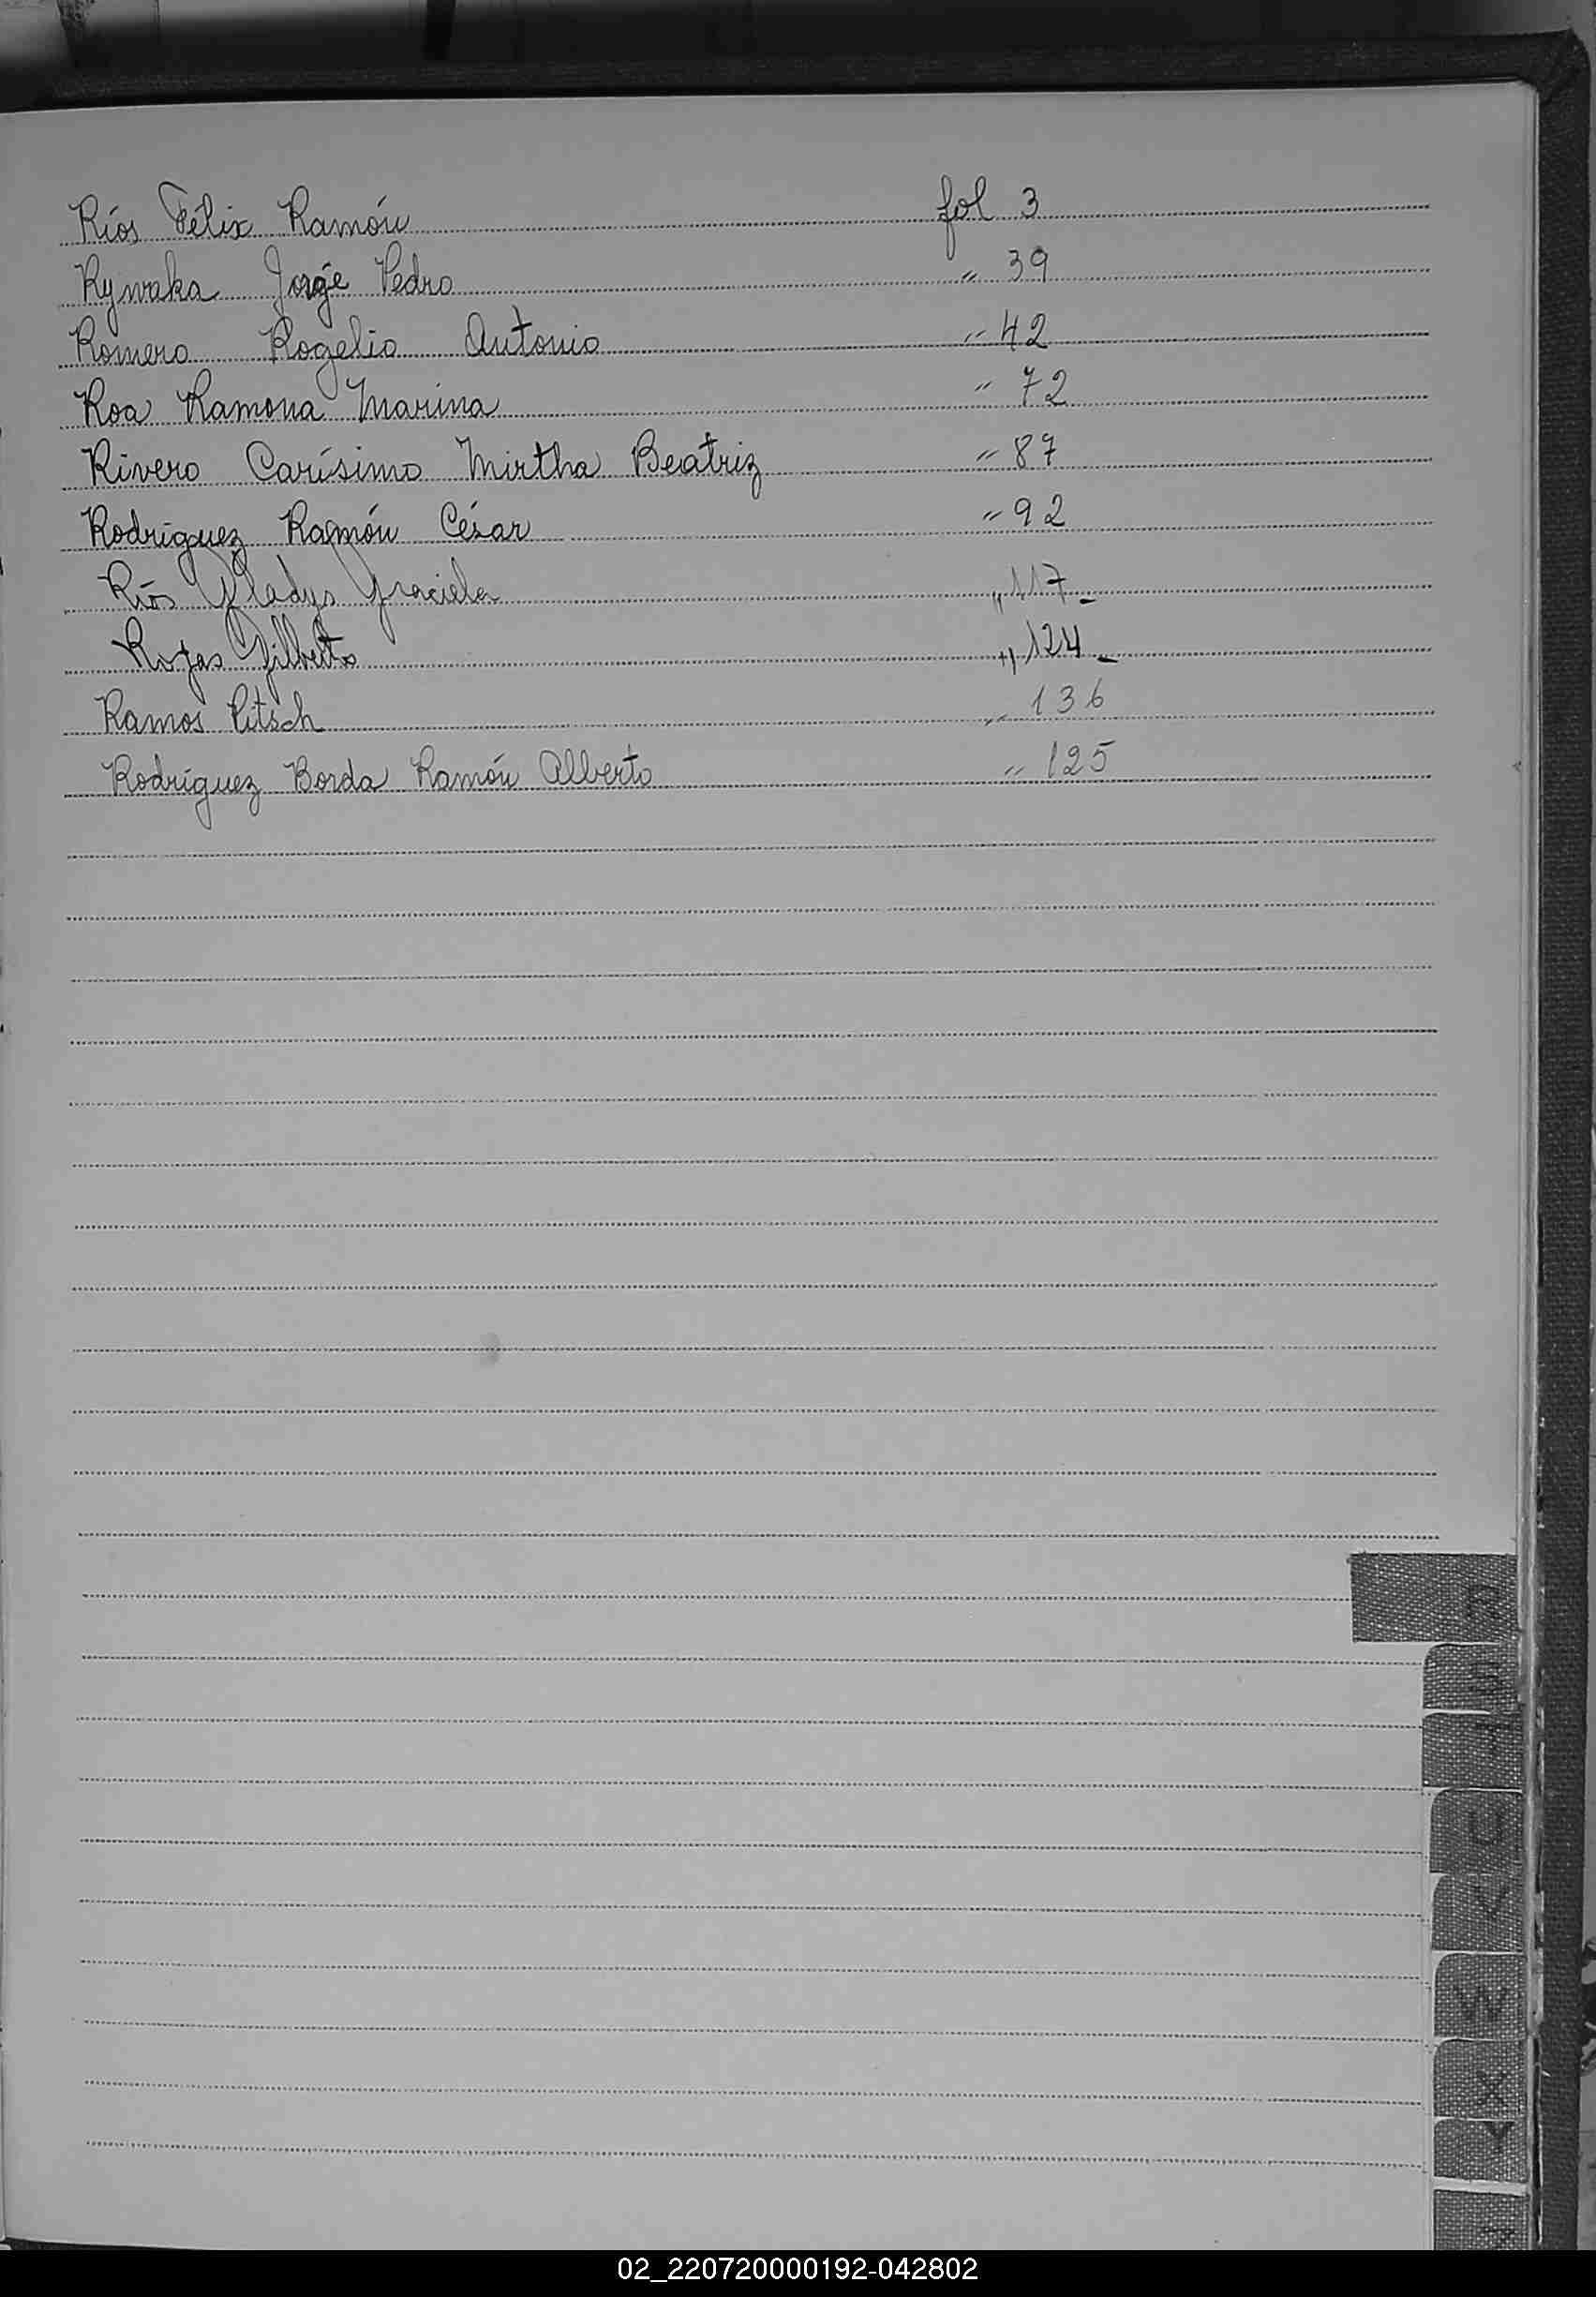 Ríos Félix Ramón fol 3
Rywaka Jorge Pedro " 39
Romero Rogelio Antonio " 42
Roa Ramona Marina " 72
Rivero Carísimo Mirtha Beatriz " 87
Rodríguez Ramón César " 92
Ríos Gladys Graciela " 117-
Rojas Gilberto " 124-
Ramos Pitsch " 136
Rodríguez Borda Ramón Alberto " 125
R
S
T
U
V
W
X
Y
02_220720000192-042802